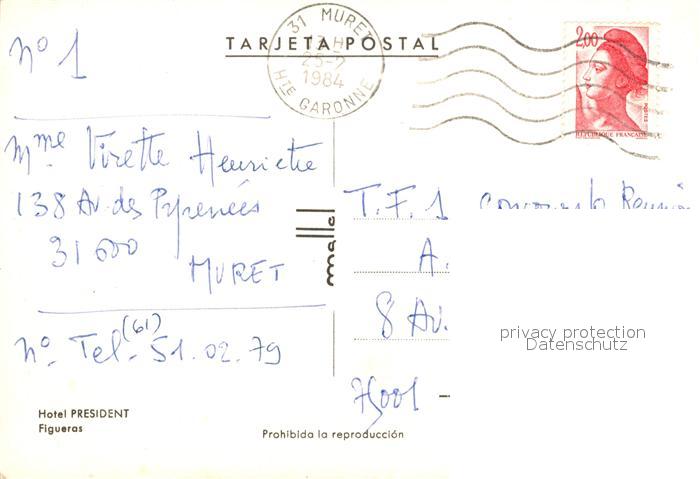 TARJETA POSTAL
31 MURET
25-2
1984
HTE GARONNE
2,00
POSTES
REPUBLIQUE FRANÇAISE
N° 1
Mme Virette Henriette
138 Av. des Pyrenées
31600
MURET
N° Tel- (61) 51.02.79
T.F.1
A.
8 Av.
75001 -
privacy protection
Datenschutz
Hotel PRESIDENT
Figueras
Prohibida la reproducción